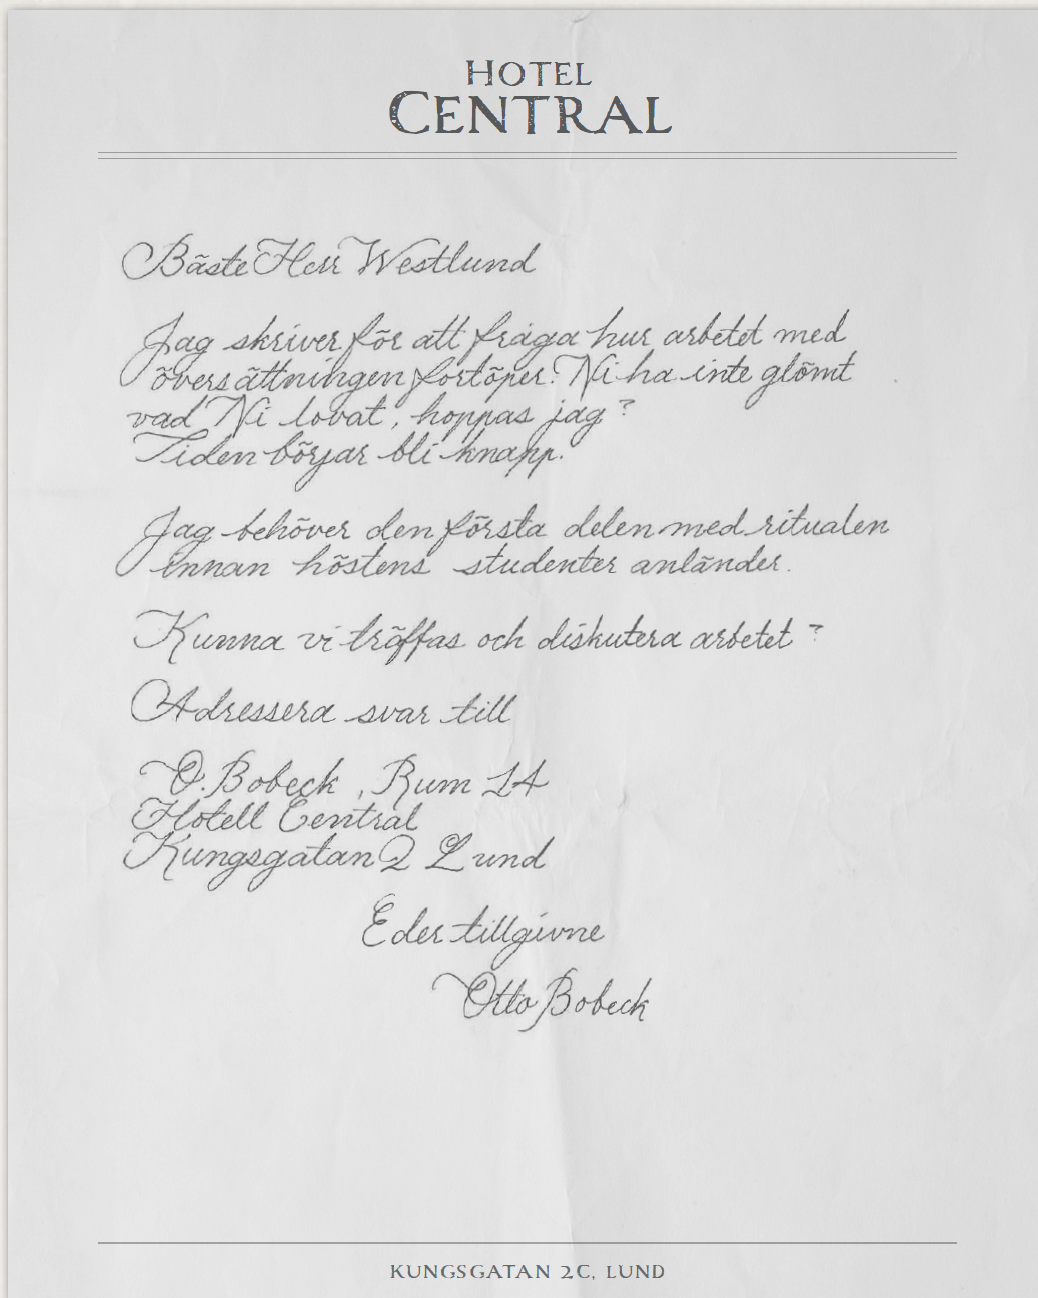 HOTEL
CENTRAL
Bäste Herr Westlund
Jag skriver för att fråga hur arbetet med
översättningen fortöper. Ni ha inte glömt
vad Ni lovat, hoppas jag?
Tiden börjar bli knapp.
Jag behöver den första delen med ritualen
innan höstens studenter anländer.
Kunna vi träffas och diskutera arbetet?
Adressera svar till
O. Bobeck, Rum 14
Hotell Central
Kungsgatan 2 Lund
Eder tillgivne
Otto Bobeck
KUNGSGATAN 2C, LUND